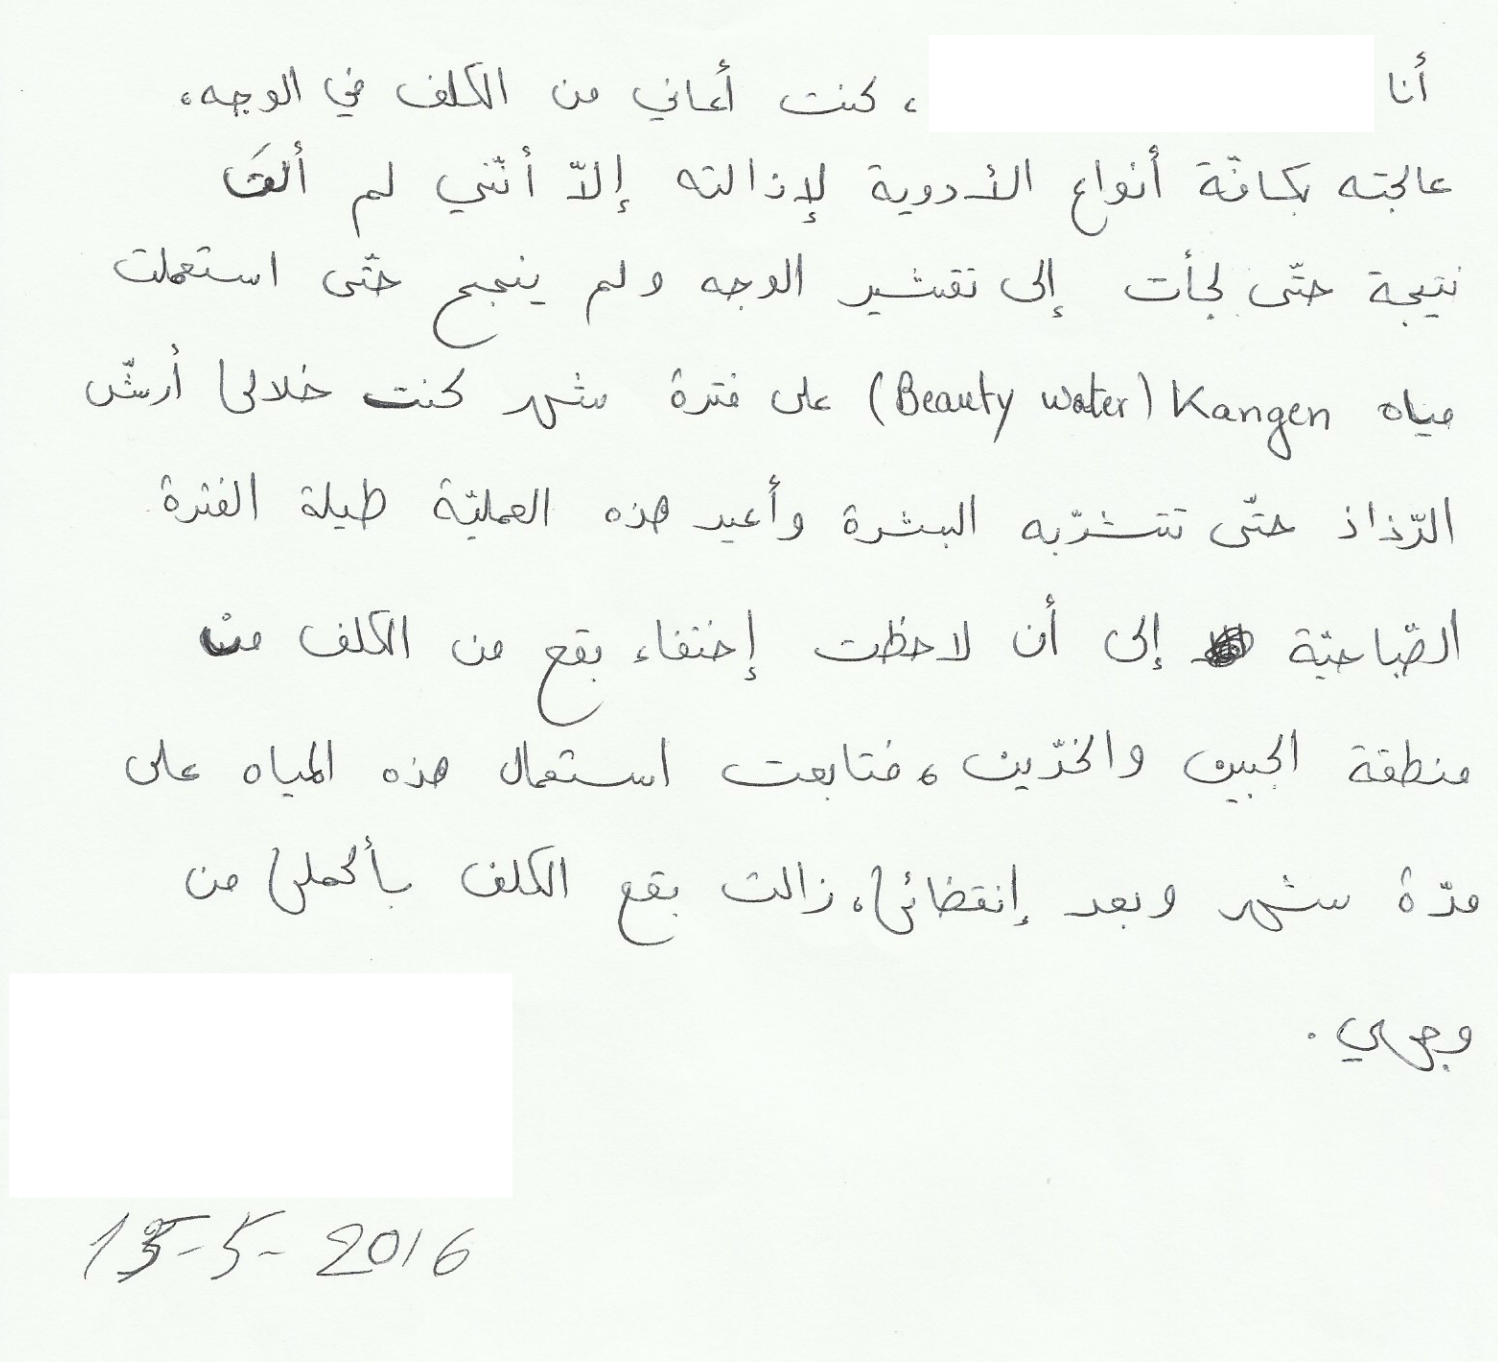 أنا ، كنت أعاني من الكلف في الوجه،
عالجته بكافّة أنواع الأدوية لإزالته إلاّ أنّني لم ألقَ
نتيجة حتّى لجأت إلى تقشير الوجه ولم ينجح حتّى استعملت
مياه Kangen (Beauty water) على فترة شهر كنت خلالها أرشّ
الرّذاذ حتّى تتشرّبه البشرة وأعيد هذه العمليّة طيلة الفترة
الصّباحيّة إلى أن لاحظت إختفاء بقع من الكلف من
منطقة الجبين والخدّين، فتابعت استعمال هذه المياه على
مدّة شهر وبعد إنقضائها، زالت بقع الكلف بأكملها من
وجهي.
15-5-2016